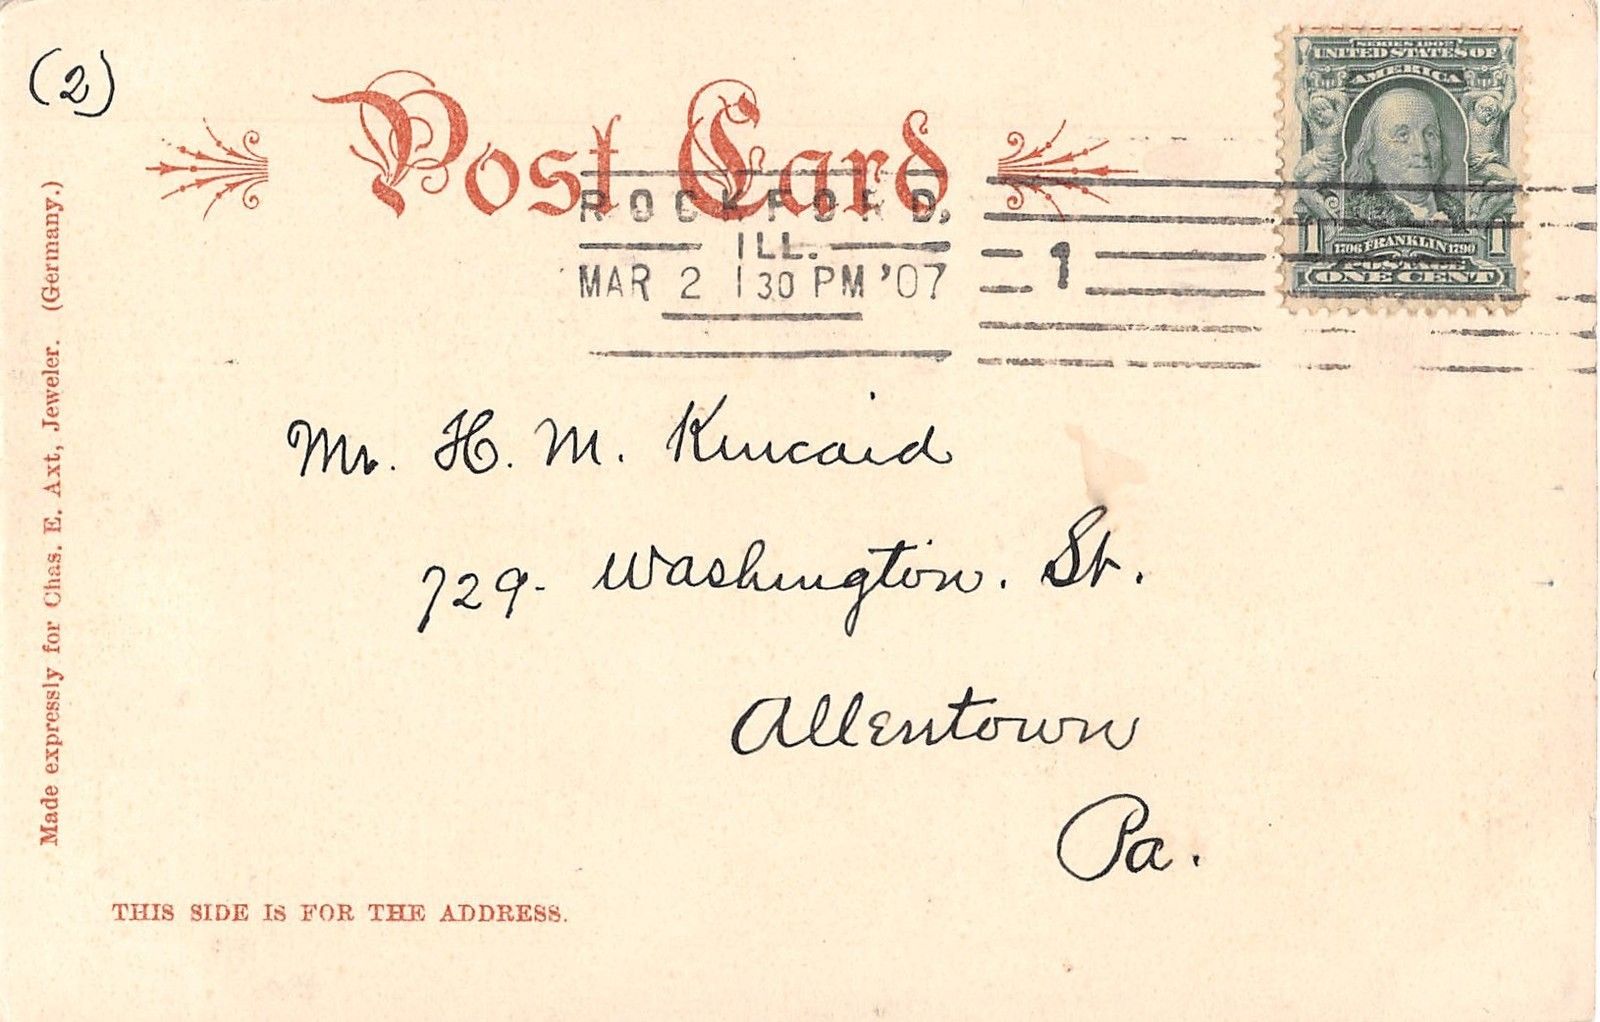 (2)
Post Card
ROCKFORD,
ILL.
MAR 2 1 30 PM '07
1
SERIES 1902
UNITED STATES OF
AMERICA
1 1
1706 FRANKLIN 1790
POSTAGE
ONE CENT
Mr. H. M. Kincaid
729- Washington. St.
Allentown
Pa.
Made expressly for Chas. E. Axt, Jeweler. (Germany.)
THIS SIDE IS FOR THE ADDRESS.